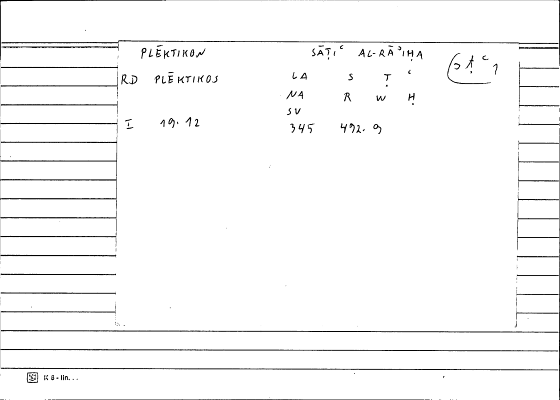 PLĒKTIKON SĀṬIʿ AL-RĀʾIḤA
RD PLĒKTIKOS LA S Ṭ ʿ
NA R W Ḥ
SV
I 19.12 345 492.9
K 8 - lin...